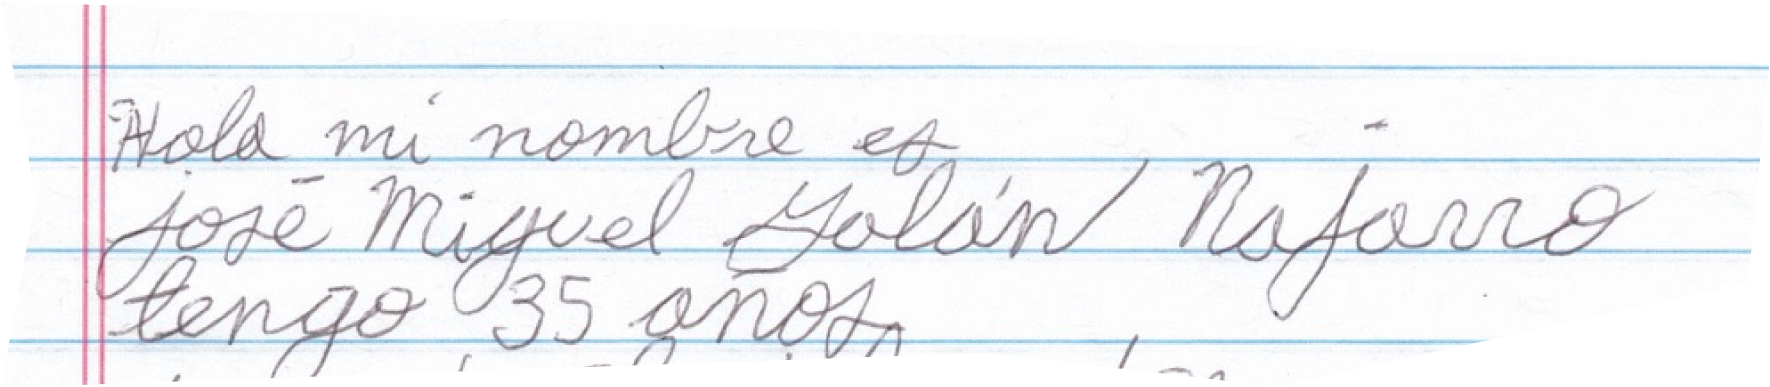 Hola mi nombre es
José Miguel Galán Najarro
tengo 35 años